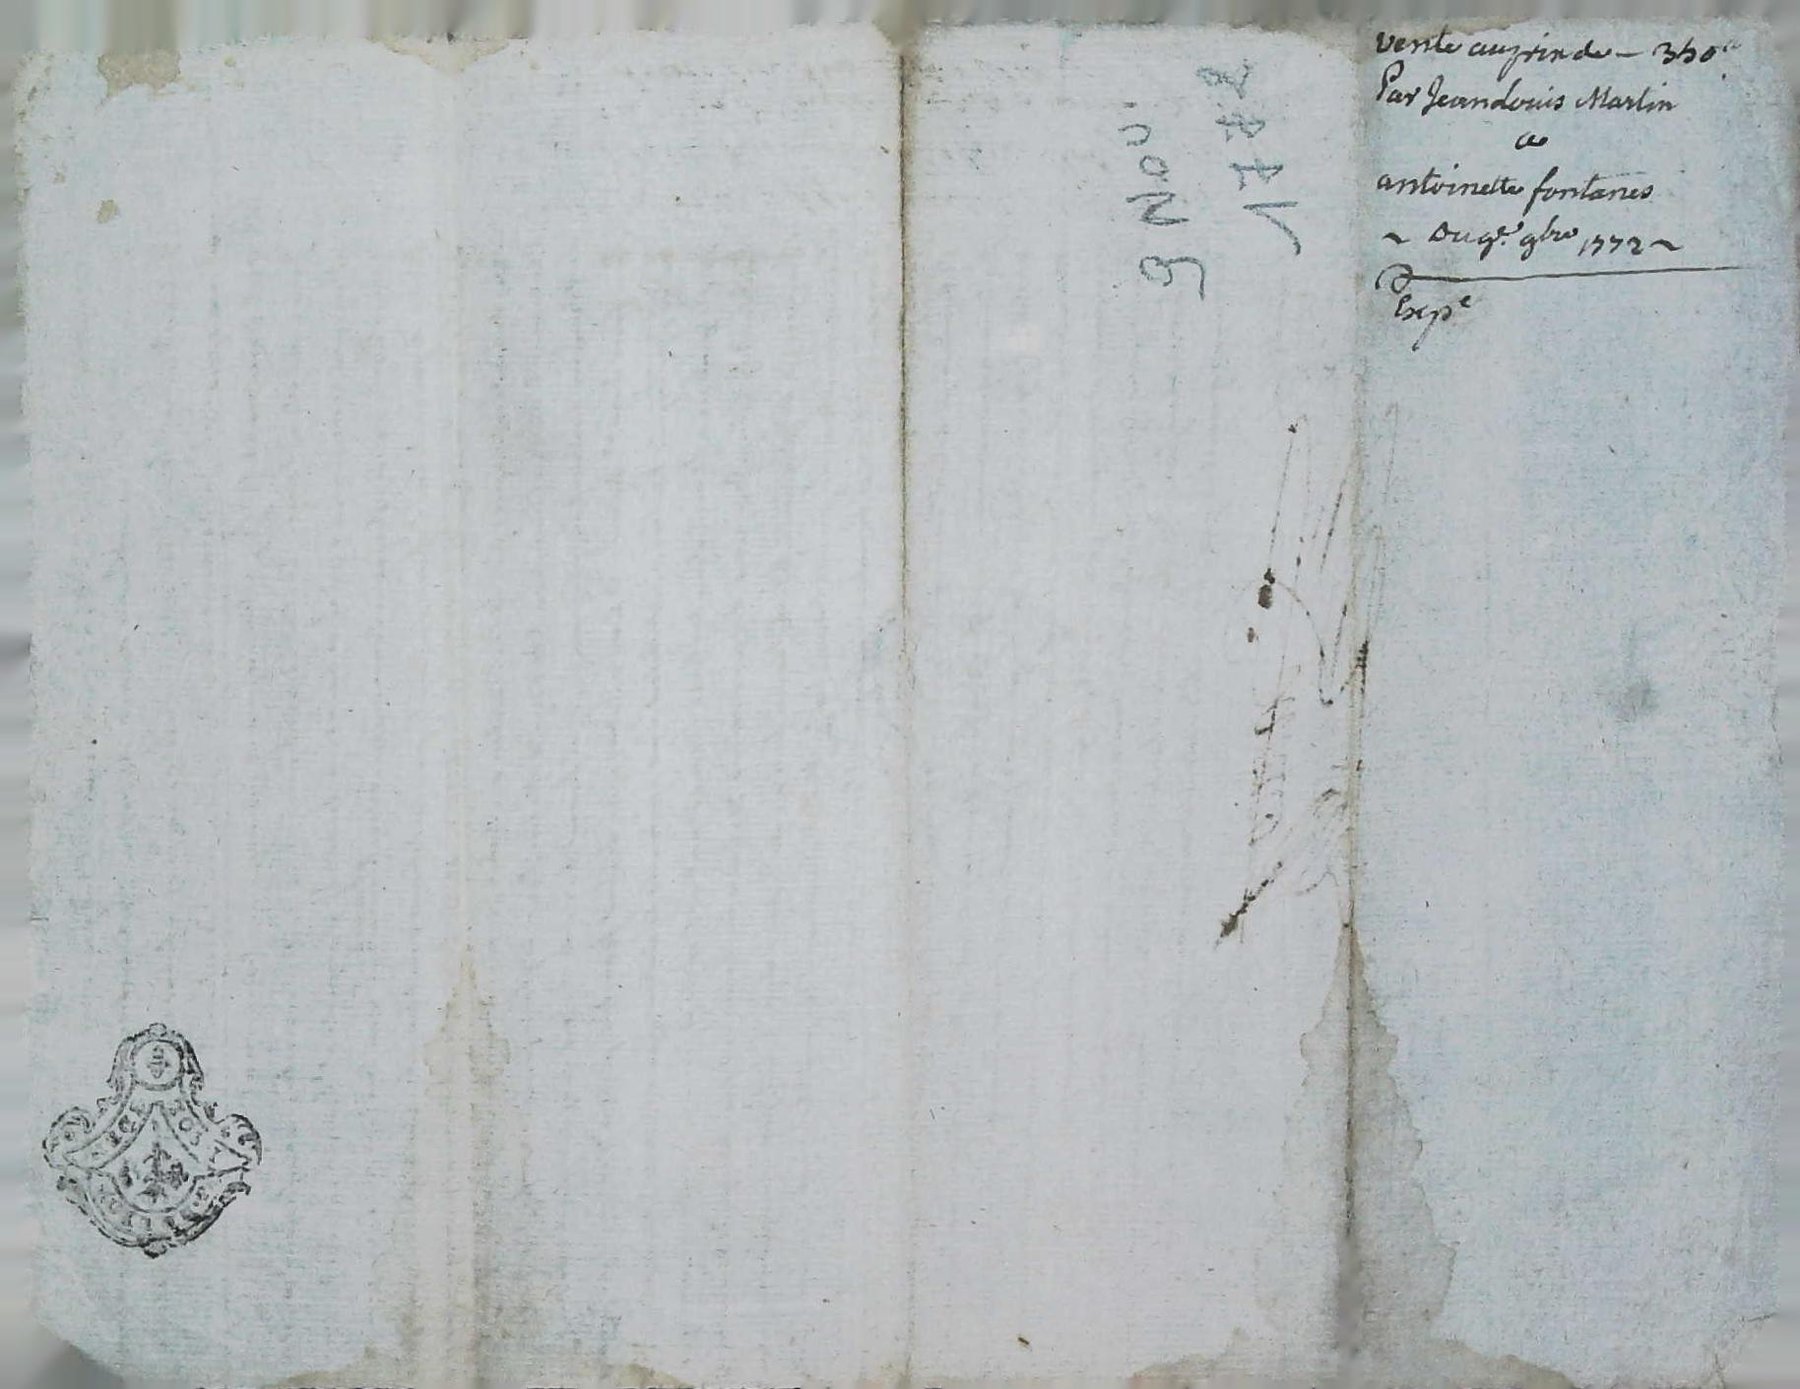 vente au prix de – 350ᵗᵗ
Par Jean Louis Martin
a
antoinette fontanes
~ Du 9ᵉ. 9bre 1772 ~
Expᵉ
9 Nov.
1772